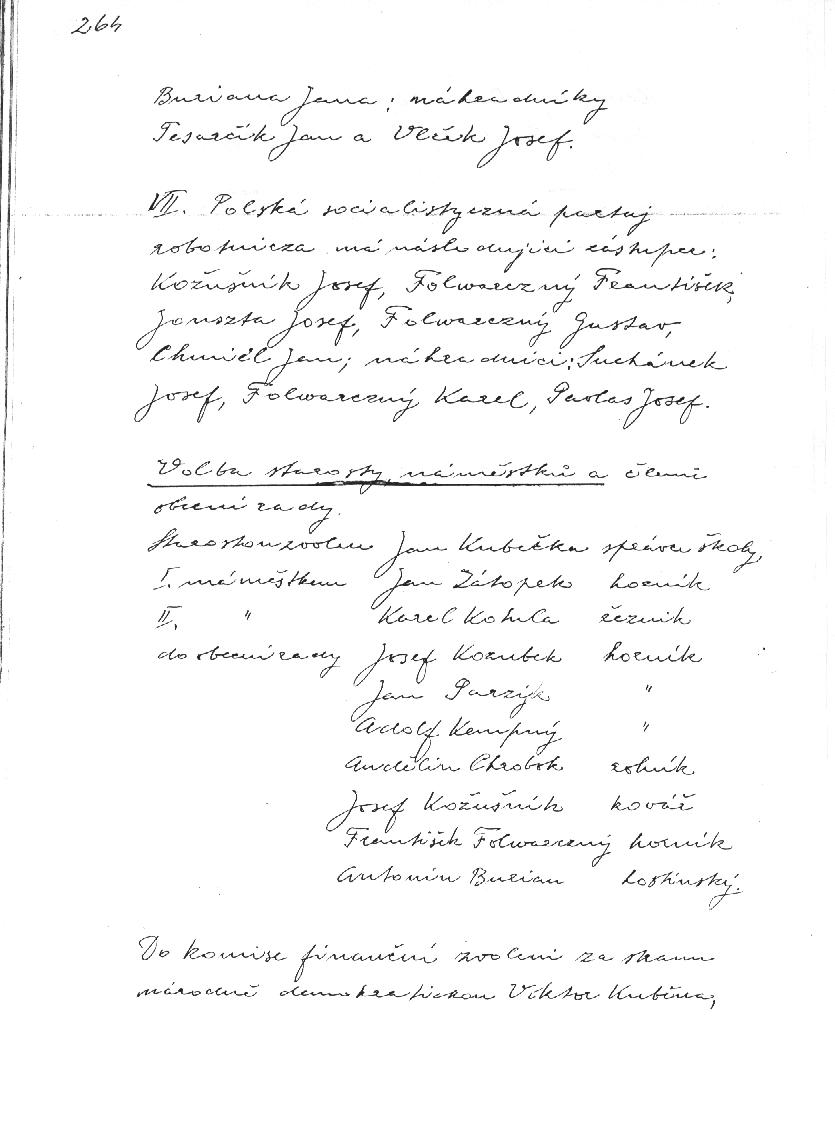 264
Buriana Jana; náhradníky
Tesarčík Jan a Vlček Josef.
VII. Polská socialistyczná partaj
robotnicza má následující zástupce:
Kožušník Josef, Folwarczný František,
Josef, Folwarczný Gustav,
Chmiél Jan; náhradníci: Suchánek
Josef, Folwarczný Karel, Pavlas Josef.
Volba starosty, náměstků a členů
obecní rady.
Starostou zvolen Jan Kubečka správce školy,
I. náměstkem Jan Zátopek horník
II. " Karel Kohula řezník
do obecní rady Josef Kozubek horník
Jan Parzyk "
Adolf Kempný "
Andělín Chrobok rolník
Josef Kožušník kovář
František Folwarczný horník
Antonín Burian hostinský.
Do komise finanční zvoleni za stranu
národně demokratickou Viktor Kuběna,